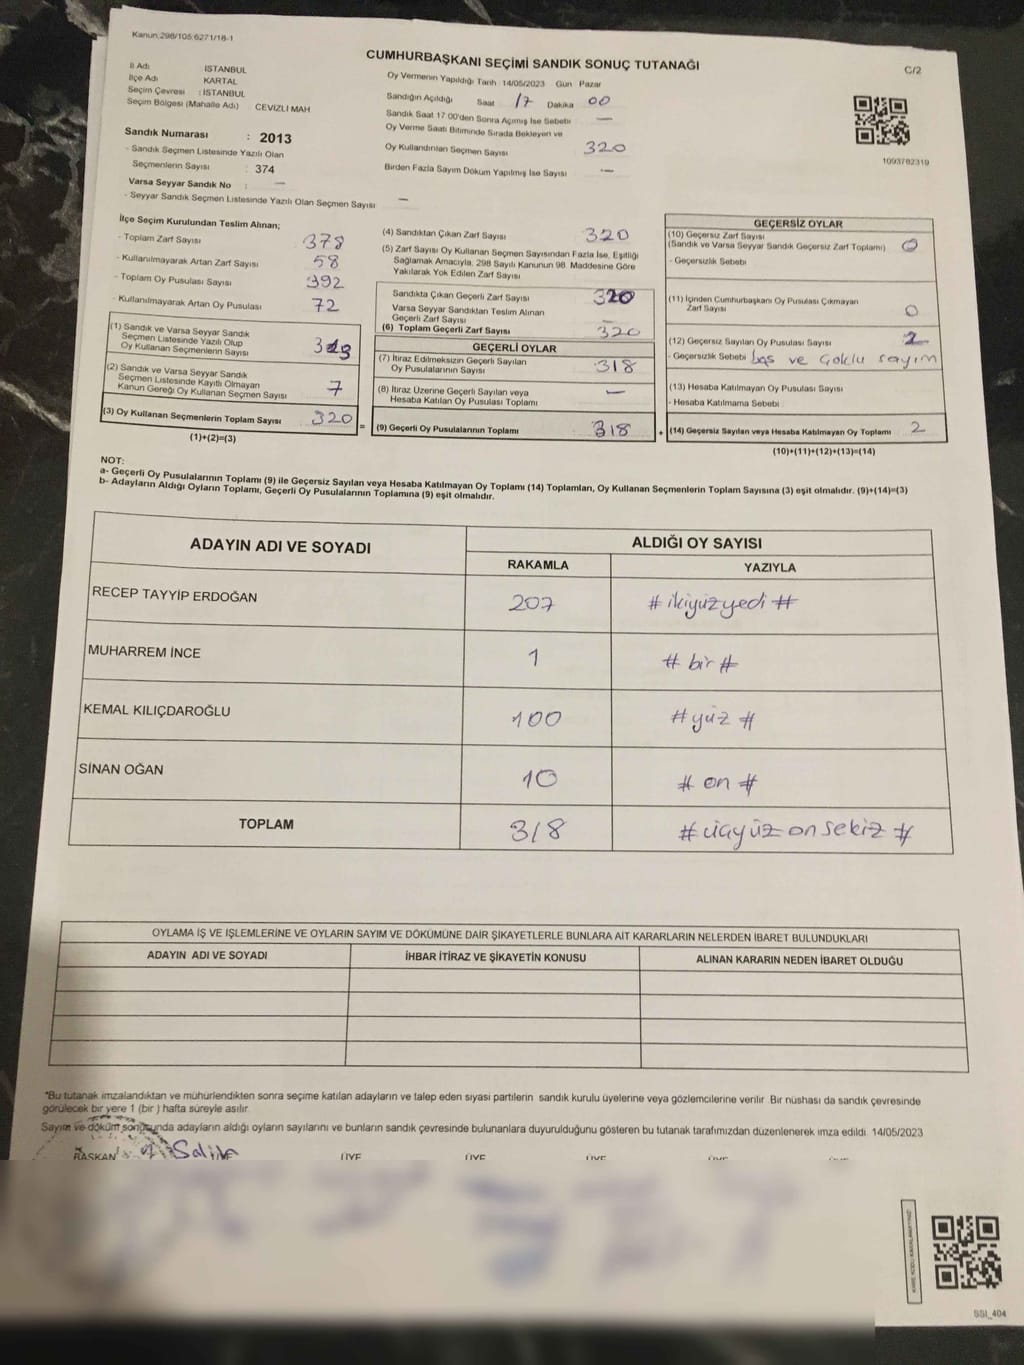 Kanun:298/105;6271/18-1
CUMHURBAŞKANI SEÇİMİ SANDIK SONUÇ TUTANAĞI
C/2
İl Adı İSTANBUL
İlçe Adı KARTAL
Seçim Çevresi : İSTANBUL
Seçim Bölgesi (Mahalle Adı) CEVİZLİ MAH
Sandık Numarası : 2013
- Sandık Seçmen Listesinde Yazılı Olan
Seçmenlerin Sayısı : 374
Varsa Seyyar Sandık No : —
- Seyyar Sandık Seçmen Listesinde Yazılı Olan Seçmen Sayısı —
Oy Vermenin Yapıldığı Tarih : 14/05/2023 Gün Pazar
Sandığın Açıldığı Saat 17 Dakika 00
Sandık Saat 17:00'den Sonra Açımış İse Sebebi —
Oy Verme Saati Bitiminde Sırada Bekleyen ve
Oy Kullandırılan Seçmen Sayısı 320
Birden Fazla Sayım Döküm Yapılmış İse Sayısı —
1093782319
İlçe Seçim Kurulundan Teslim Alınan;
- Toplam Zarf Sayısı 378
- Kullanılmayarak Artan Zarf Sayısı 58
- Toplam Oy Pusulası Sayısı 392
- Kullanılmayarak Artan Oy Pusulası 72
(1) Sandık ve Varsa Seyyar Sandık
Seçmen Listesinde Yazılı Olup
Oy Kullanan Seçmenlerin Sayısı 313
(2) Sandık ve Varsa Seyyar Sandık
Seçmen Listesinde Kayıtlı Olmayan
Kanun Gereği Oy Kullanan Seçmen Sayısı 7
(3) Oy Kullanan Seçmenlerin Toplam Sayısı 320
(1)+(2)=(3)
(4) Sandıktan Çıkan Zarf Sayısı 320
(5) Zarf Sayısı Oy Kullanan Seçmen Sayısından Fazla İse, Eşitliği
Sağlamak Amacıyla, 298 Sayılı Kanunun 98. Maddesine Göre
Yakılarak Yok Edilen Zarf Sayısı
Sandıkta Çıkan Geçerli Zarf Sayısı 320
Varsa Seyyar Sandıktan Teslim Alınan
Geçerli Zarf Sayısı —
(6) Toplam Geçerli Zarf Sayısı 320
GEÇERLİ OYLAR
(7) İtiraz Edilmeksizin Geçerli Sayılan
Oy Pusulalarının Sayısı 318
(8) İtiraz Üzerine Geçerli Sayılan veya
Hesaba Katılan Oy Pusulası Toplamı —
= (9) Geçerli Oy Pusulalarının Toplamı 318
GEÇERSİZ OYLAR
(10) Geçersiz Zarf Sayısı
(Sandık ve Varsa Seyyar Sandık Geçersiz Zarf Toplamı) 0
- Geçersizlik Sebebi
(11) İçinden Cumhurbaşkanı Oy Pusulası Çıkmayan
Zarf Sayısı 0
(12) Geçersiz Sayılan Oy Pusulası Sayısı 2
- Geçersizlik Sebebi boş ve Çoklu sayım
(13) Hesaba Katılmayan Oy Pusulası Sayısı
- Hesaba Katılmama Sebebi
+ (14) Geçersiz Sayılan veya Hesaba Katılmayan Oy Toplamı 2
(10)+(11)+(12)+(13)=(14)
NOT:
a- Geçerli Oy Pusulalarının Toplamı (9) ile Geçersiz Sayılan veya Hesaba Katılmayan Oy Toplamı (14) Toplamları, Oy Kullanan Seçmenlerin Toplam Sayısına (3) eşit olmalıdır. (9)+(14)=(3)
b- Adayların Aldığı Oyların Toplamı, Geçerli Oy Pusulalarının Toplamına (9) eşit olmalıdır.
ADAYIN ADI VE SOYADI ALDIĞI OY SAYISI
RAKAMLA YAZIYLA
RECEP TAYYİP ERDOĞAN 207 # ikiyüzyedi #
MUHARREM İNCE 1 # bir #
KEMAL KILIÇDAROĞLU 100 # yüz #
SİNAN OĞAN 10 # on #
TOPLAM 318 # üçyüz onsekiz #
OYLAMA İŞ VE İŞLEMLERİNE VE OYLARIN SAYIM VE DÖKÜMÜNE DAİR ŞİKAYETLERLE BUNLARA AİT KARARLARIN NELERDEN İBARET BULUNDUKLARI
ADAYIN ADI VE SOYADI İHBAR İTİRAZ VE ŞİKAYETİN KONUSU ALINAN KARARIN NEDEN İBARET OLDUĞU
*Bu tutanak imzalandıktan ve mühürlendikten sonra seçime katılan adayların ve talep eden siyasi partilerin sandık kurulu üyelerine veya gözlemcilerine verilir. Bir nüshası da sandık çevresinde
görülecek bir yere 1 (bir) hafta süreyle asılır.
Sayım ve döküm sonucunda adayların aldığı oyların sayılarını ve bunların sandık çevresinde bulunanlara duyurulduğunu gösteren bu tutanak tarafımızdan düzenlenerek imza edildi. 14/05/2023
BAŞKAN ÜYE ÜYE ÜYE
SSI_404